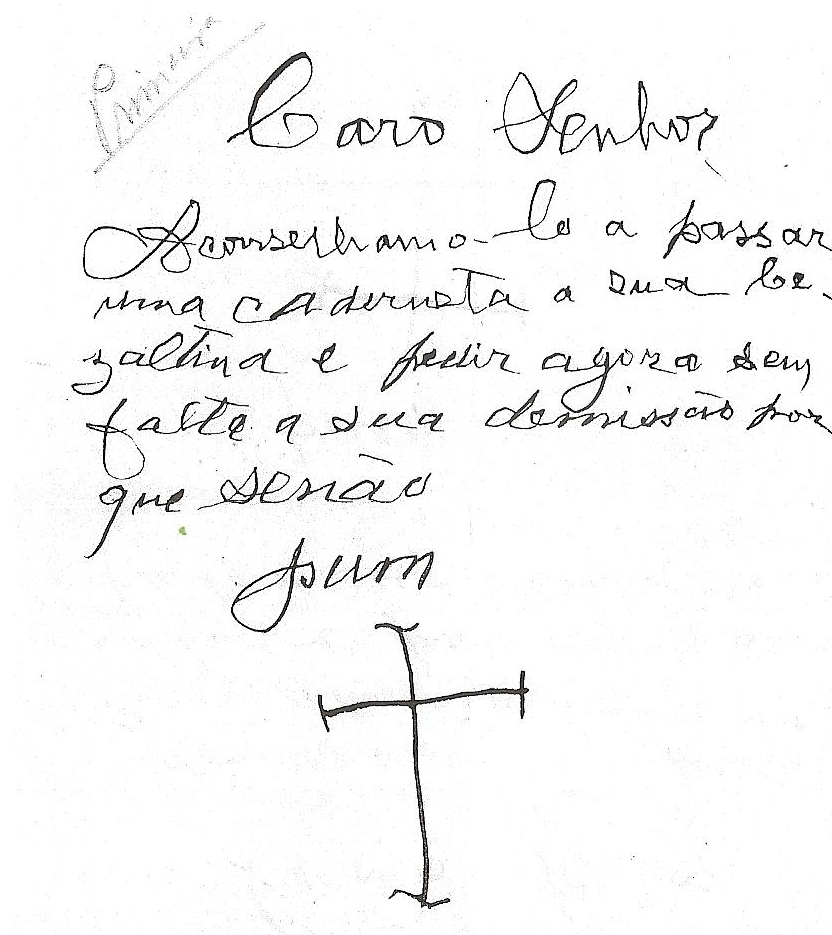 Primeira
Caro Senhor
Aconselhamo-lo a passar
uma caderneta a sua Ce-
zaltina e pedir agora sem
falta a sua demissão por
que senão
pum